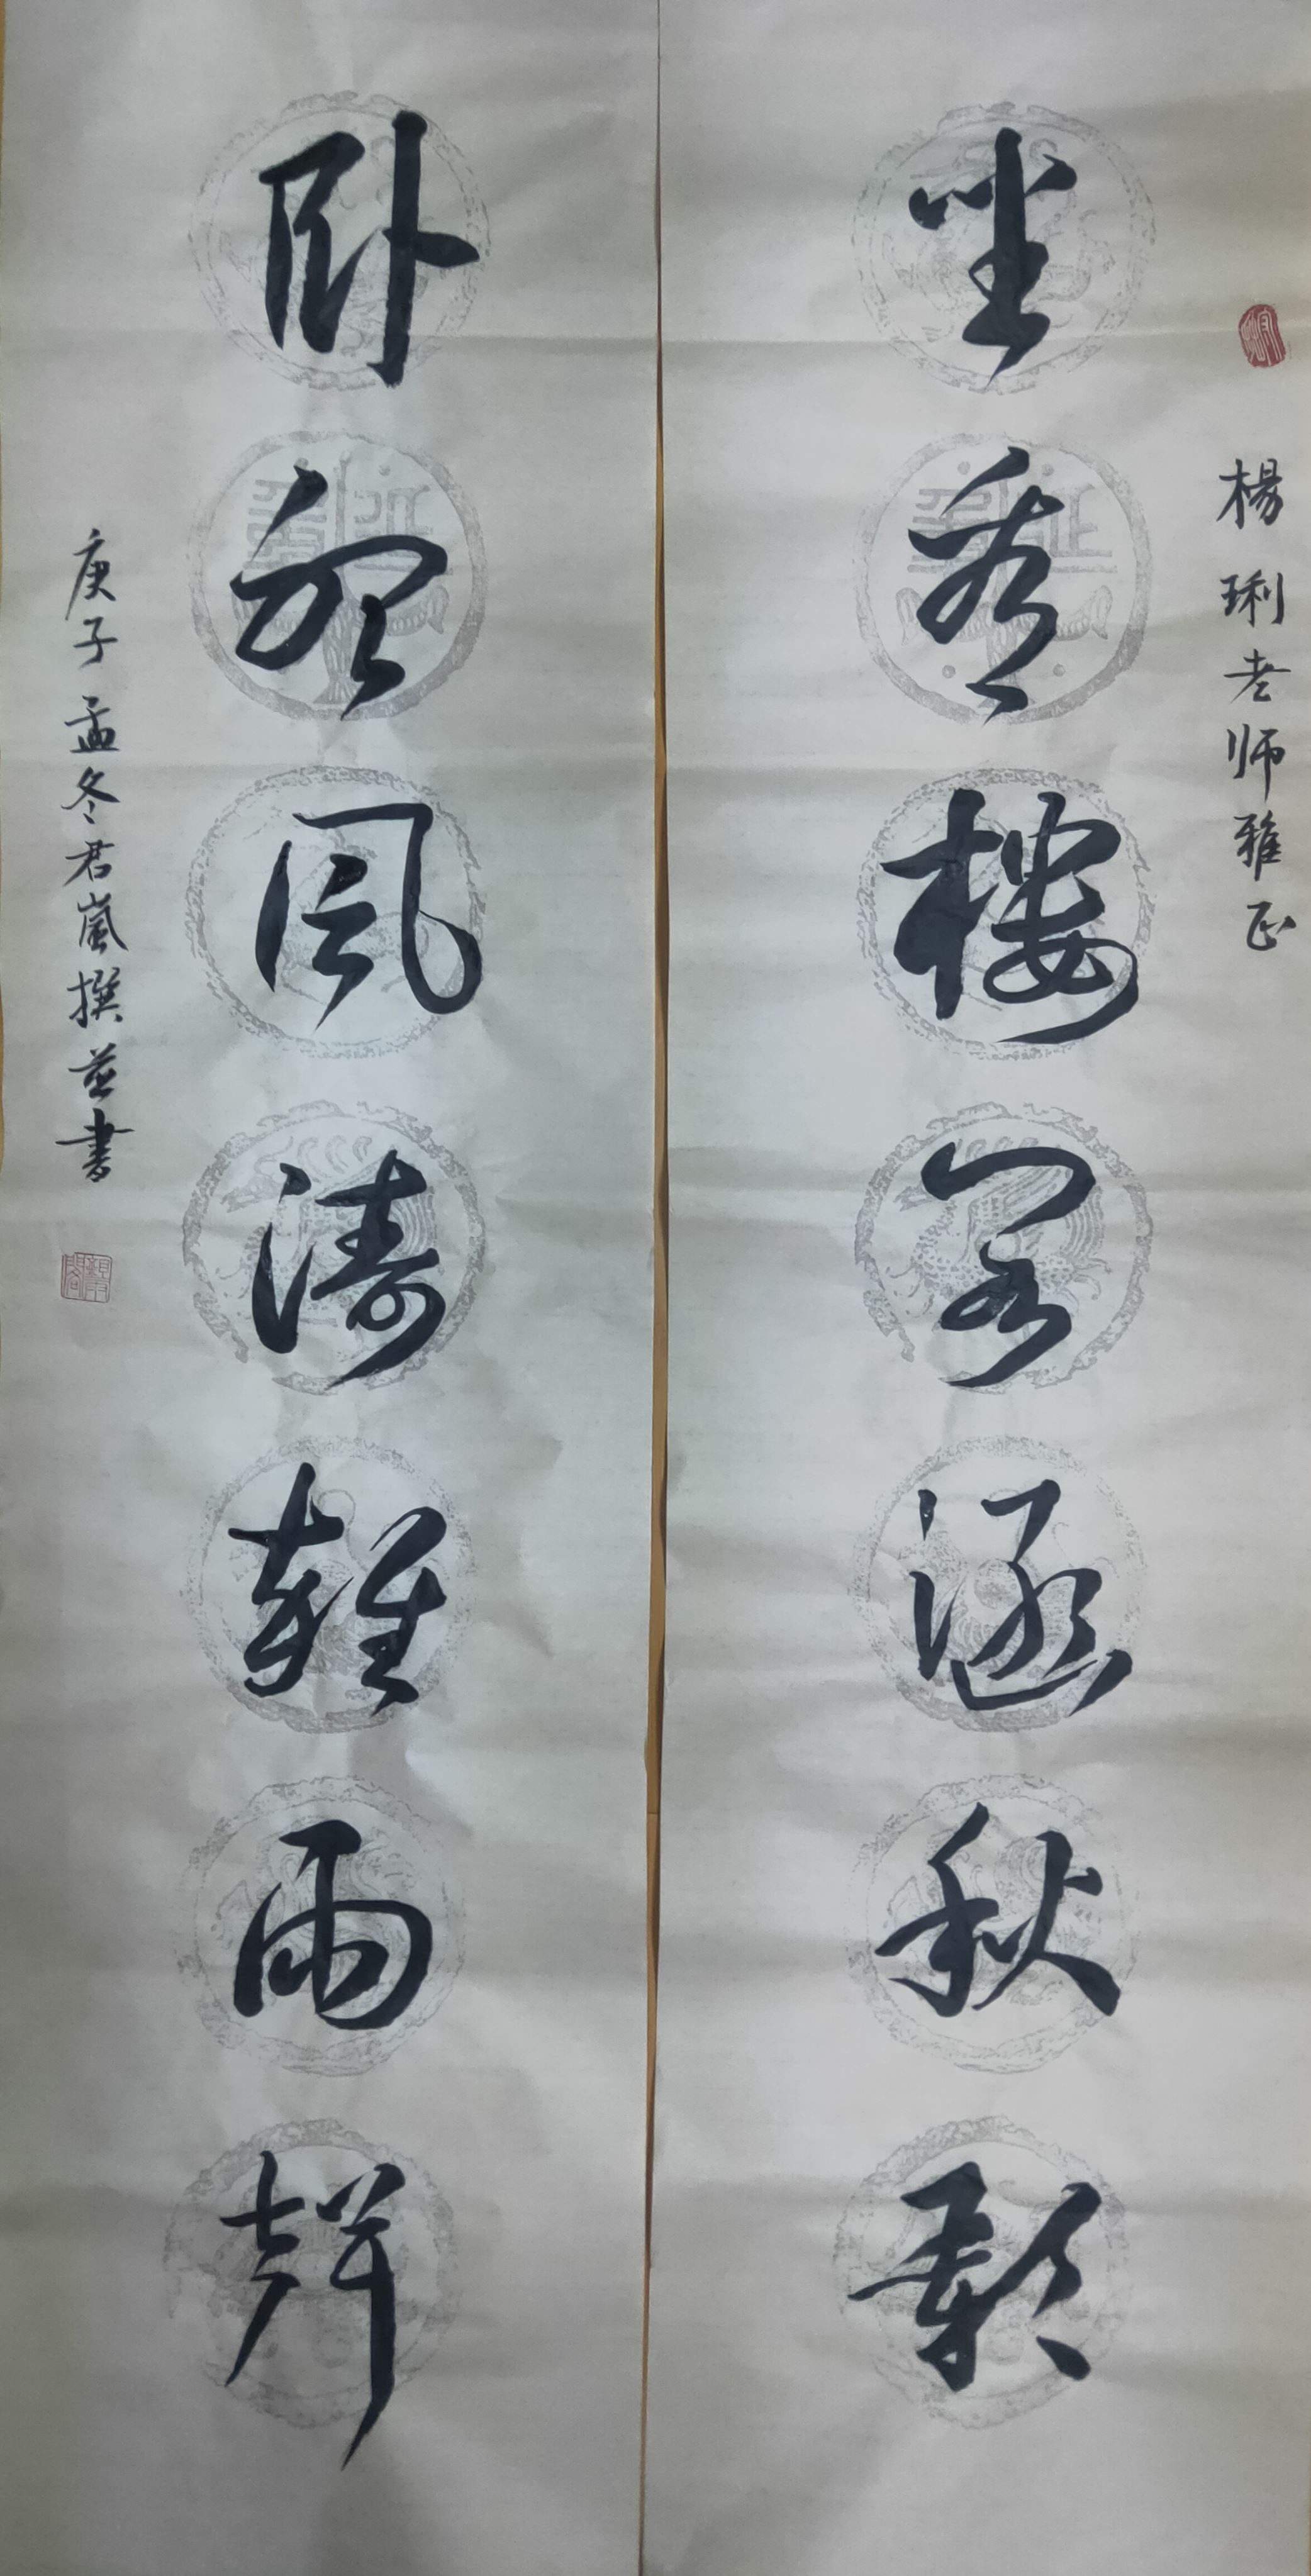 楊琍老师雅正
坐看樓閣涵秋影
卧聽風濤雜雨聲
庚子孟冬君嵐撰並書